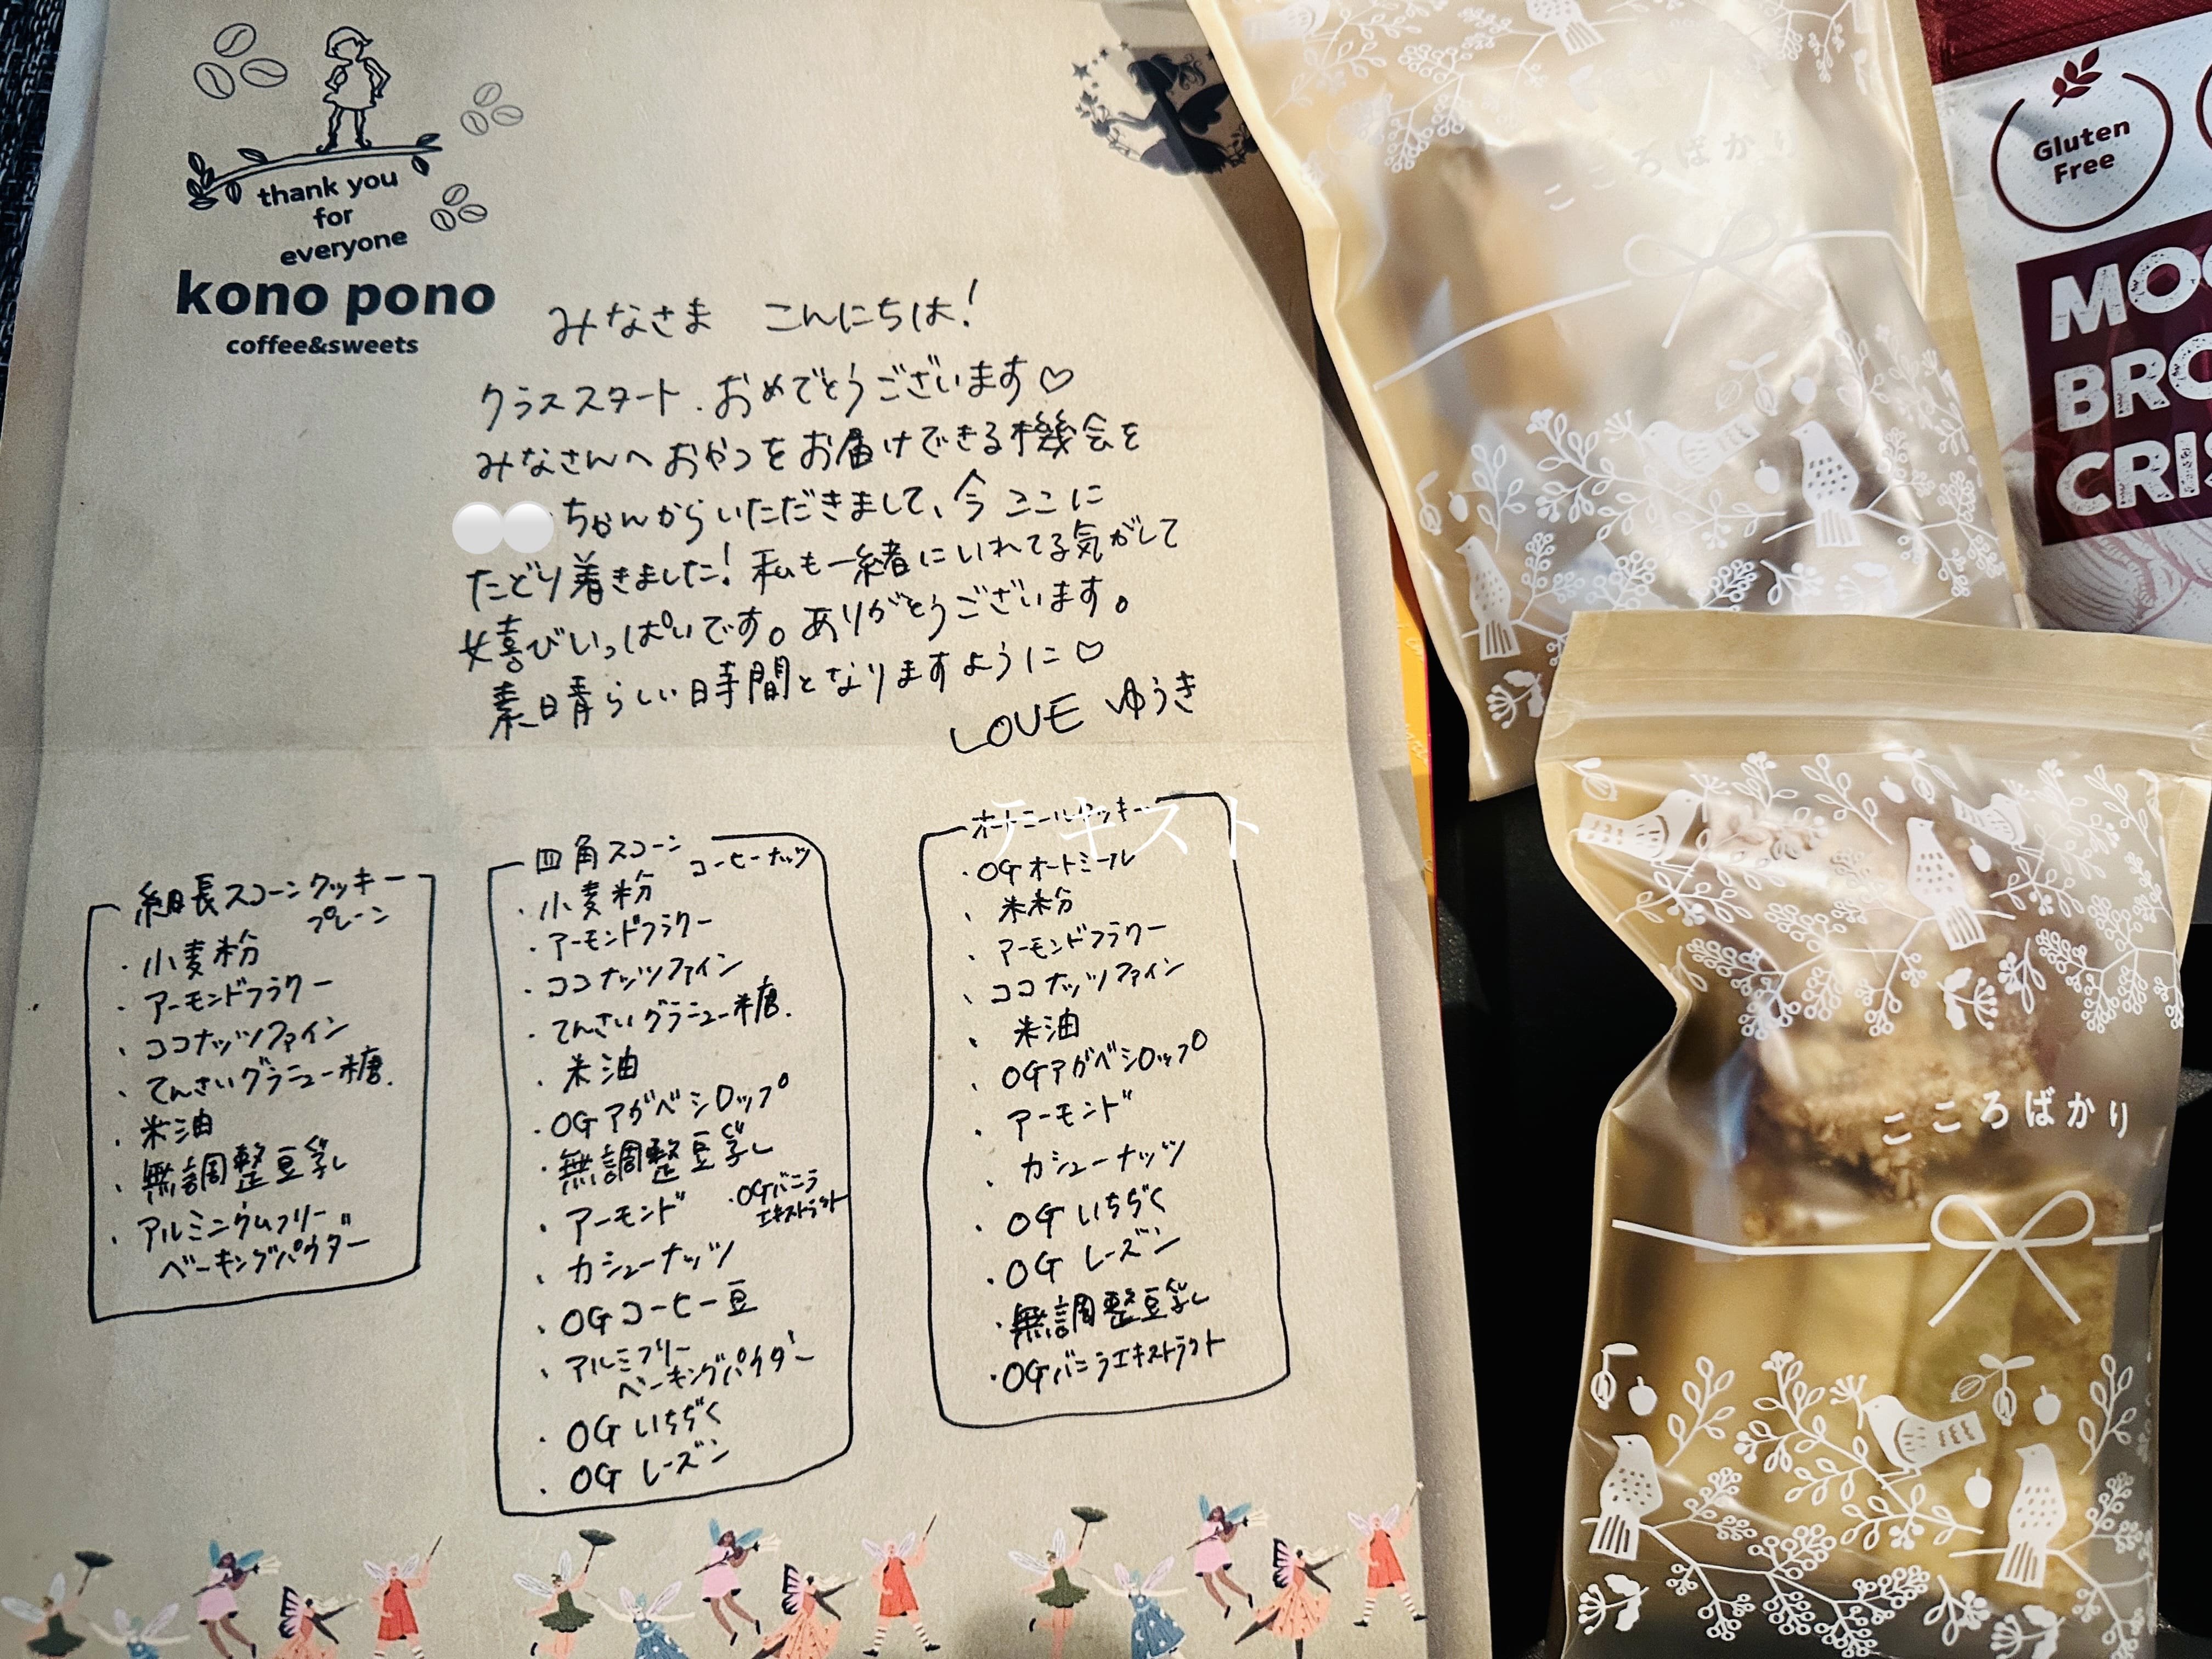 thank you
for
everyone
kono pono
coffee&sweets
みなさま こんにちは!
クラススタート.おめでとうございます♡
みなさんへおやつをお届けできる機会を
ちゃんからいただきまして、今ここに
たどり着きました!私も一緒にいれてる気がして
嬉びいっぱいです。ありがとうございます。
素晴らしい時間となりますように♡
LOVE ゆうき
細長スコーンクッキー
プレーン
・小麦粉
・アーモンドフラワー
・ココナッツファイン
・てんさいグラニュー糖.
・米油
・無調整豆乳
・アルミニウムフリー
ベーキングパウダー
四角スコーン
コーヒーナッツ
・小麦粉
・アーモンドフラワー
・ココナッツファイン
・てんさいグラニュー糖.
・米油
・OGアガベシロップ
・無調整豆乳
・アーモンド
・OGバニラ
エキストラクト
・カシューナッツ
・OGコーヒー豆
・アルミフリー
ベーキングパウダー
・OGいちぢく
・OGレーズン
オートミールクッキー
テキスト
・OGオートミール
、米粉
、アーモンドフラワー
、ココナッツファイン
、米油
、OGアガベシロップ
・アーモンド
、カシューナッツ
・OGいちぢく
・OGレーズン
・無調整豆乳
・OGバニラエキストラクト
こころばかり
Gluten
Free
MOO
BRO
CRIS
こころばかり